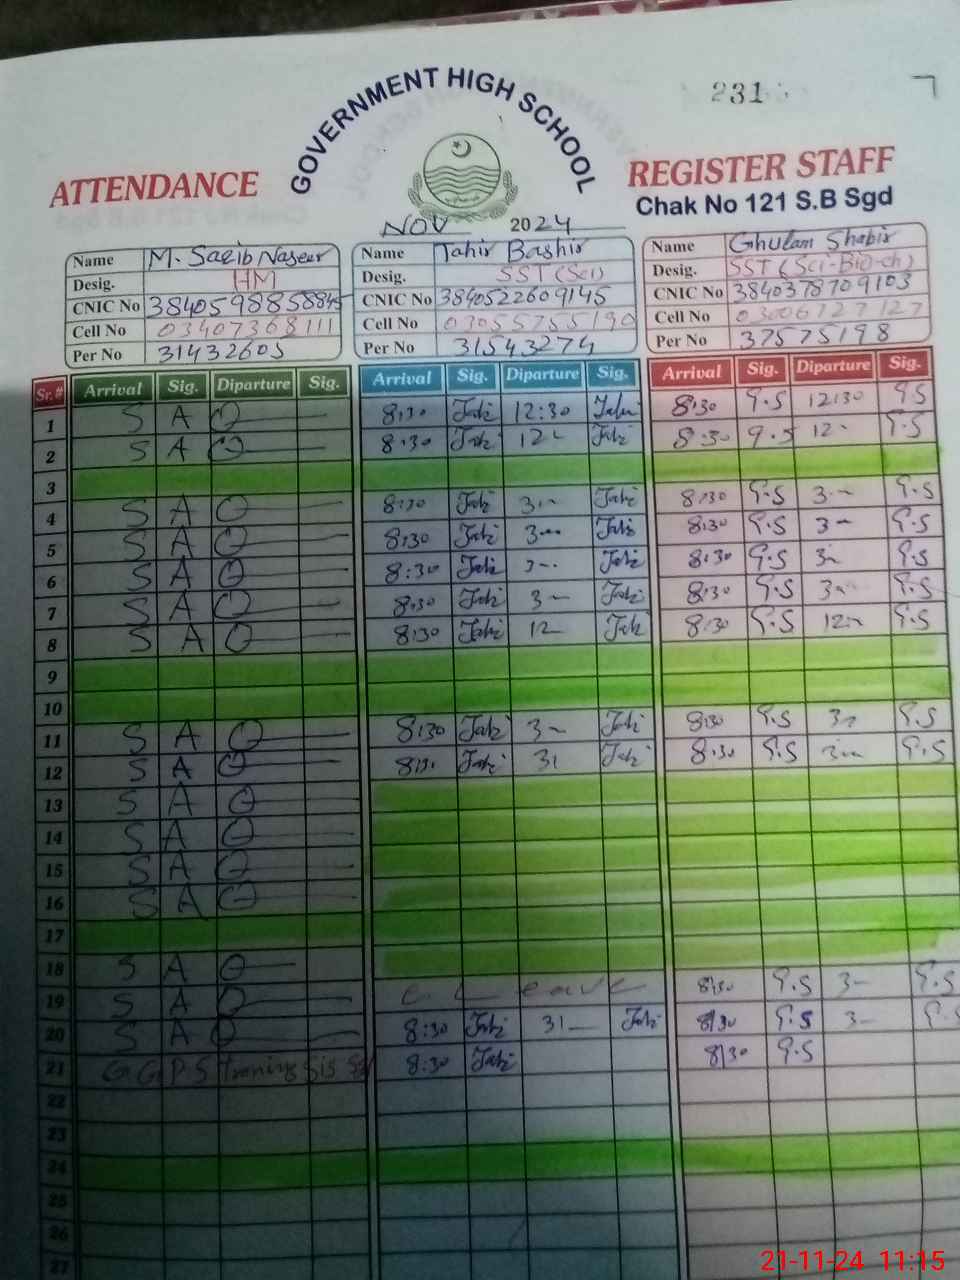 231
GOVERNMENT HIGH SCHOOL
ATTENDANCE REGISTER STAFF
Chak No 121 S.B Sgd
NOV 2024
Name M. Saqib Naseer Name Tahir Bashir Name Ghulam Shabir
Desig. HM Desig. SST (Sci) Desig. SST (Sci-Bio-ch)
CNIC No 3840598858845 CNIC No 3840522609145 CNIC No 3840378709103
Cell No 03407368111 Cell No 03055755190 Cell No 03006727127
Per No 31432605 Per No 31543274 Per No 37575198
Sr.# Arrival Sig. Diparture Sig. Arrival Sig. Diparture Sig. Arrival Sig. Diparture Sig.
1 S A O — 8:30 12:30 8:30 G.S 12:30 G.S
2 S A O — 8:30 12- 8:30 G.S 12- G.S
3
4 S A O — 8:30 3-- 8:30 G.S 3-- G.S
5 S A O — 8:30 3-- 8:30 G.S 3- G.S
6 S A O — 8:30 3-- 8:30 G.S 3- G.S
7 S A O — 8:30 3- 8:30 G.S 3-- G.S
8 S A O — 8:30 12- 8:30 G.S 12- G.S
9
10
11 S A O — 8:30 3- 8:30 G.S 3- G.S
12 S A O — 8:30 3- 8:30 G.S 3-- G.S
13 S A O —
14 S A O —
15 S A O —
16 S A O —
17
18 S A O —
19 S A O — C Leave 8:30 G.S 3- G.S
20 S A O — 8:30 3- 8:30 G.S 3- G.S
21 G G P S 8:30 8:30 G.S
22
23
24
25
26
27
21-11-24 11:15